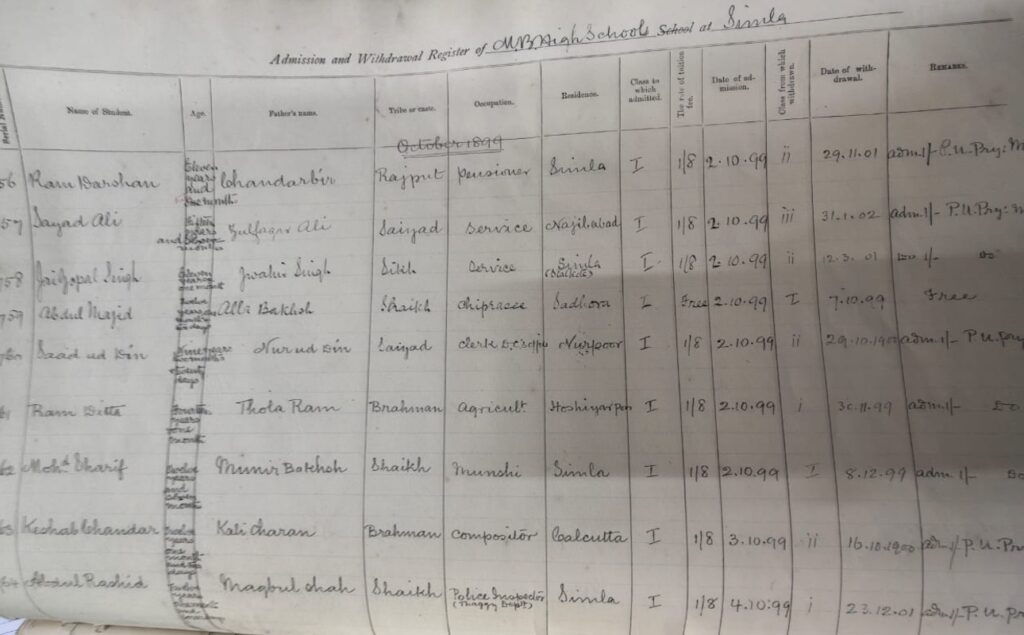 Admission and Withdrawal Register of M.B. High Schools School at Simla
Name of Student. Age. Father's name. Tribe or caste. Occupation. Residence. Class to which admitted. The rate of tuition fee. Date of admission. Class from which withdrawn. Date of withdrawal. Remarks.
October 1899
56 Ram Darshan Eleven years and one month Chandarbir Rajput Pensioner Simla I 1/8 2.10.99 ii 29.11.01 adm 1/-
57 Sayad Ali years and months Zulfaqar Ali Saiyad Service Najibabad I 1/8 2.10.99 iii 31.1.02 adm. 1/- P.U. Pry:
758 Jai Gopal Singh Eleven years one month Jwahir Singh Sikh Service Simla I 1/8 2.10.99 ii 12.3.01 Do 1/- Do
759 Abdul Majid Twelve years days Alli Bakhsh Shaikh Chiprasee Sadhora I Free 2.10.99 I 7.10.99 Free
760 Saad ud Din Nine years months twenty days Nur ud Din Saiyad Clerk Nurpoor I 1/8 2.10.99 ii 29.10.1900 adm. 1/- P.U. Pry
61 Ram Ditta years one month Thola Ram Brahman Agricult. Hoshiyarpur I 1/8 2.10.99 i 30.11.99 adm 1/- Do
62 Mohd Sharif Twelve years and month Munir Bakhsh Shaikh Munshi Simla I 1/8 2.10.99 I 8.12.99 adm. 1/- Do
63 Keshab Chandar Twelve years one month and days Kali Charan Brahman Compositor Calcutta I 1/8 3.10.99 ii 16.10.1900 adm 1/- P.U. Pry
64 Abdul Rashid Twelve years Maqbul Shah Shaikh Police Inspector (Thaggy Dept) Simla I 1/8 4.10.99 i 23.12.01 adm 1/- P.U. Pry